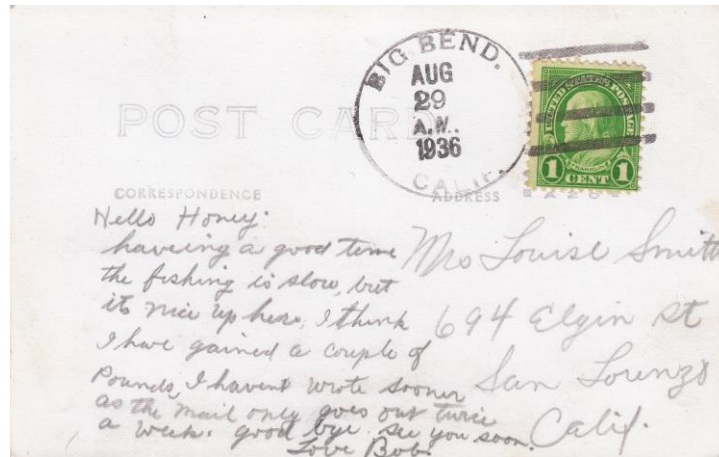 BIG BEND.
AUG
29
A.M.
1936
CALIF.
UNITED STATES POSTAGE
FRANKLIN
1 CENT 1
POST CARD
CORRESPONDENCE
ADDRESS
Hello Honey:
haveing a good time
the fishing is slow, but
its nice up here, I think
I have gained a couple of
Pounds, I havent wrote sooner
as the mail only goes out twice
a week. good bye. see you soon.
Love Bob.
Mrs Louise Smith
694 Elgin St
San Lorenzo
Calif.